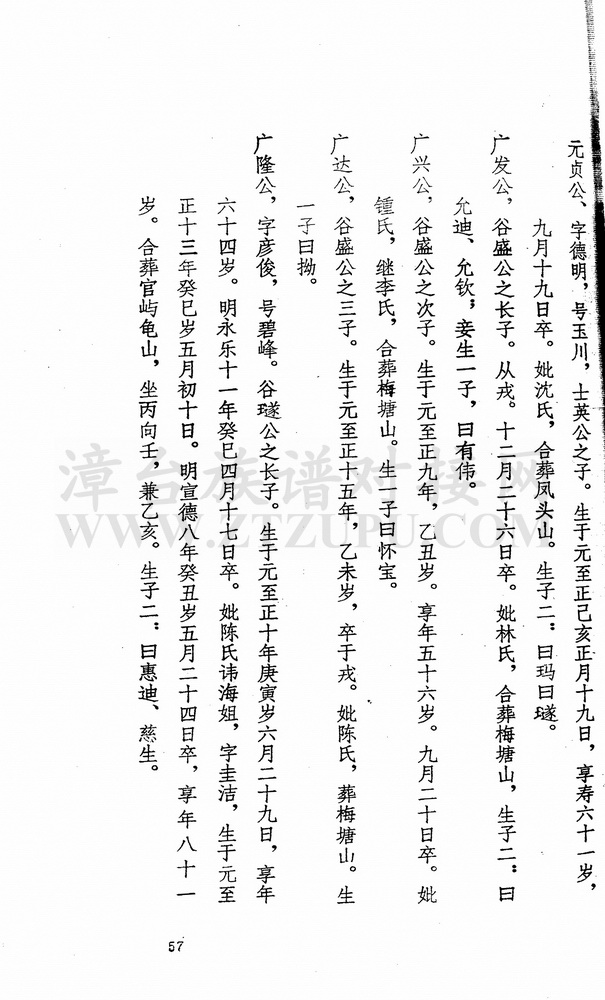 元贞公、字德明，号玉川，士英公之子。生于元至正己亥正月十九日，享寿六十一岁，
九月十九日卒。妣沈氏，合葬凤头山。生子二：曰玛曰璲。
广发公，谷盛公之长子。从戎。十二月二十六日卒。妣林氏，合葬梅塘山，生子二：曰
允迪、允钦；妾生一子，曰有伟。
广兴公，谷盛公之次子。生于元至正九年，乙丑岁。享年五十六岁。九月二十日卒。妣
锺氏，继李氏，合葬梅塘山。生一子曰怀宝。
广达公，谷盛公之三子。生于元至正十五年，乙未岁，卒于戎。妣陈氏，葬梅塘山。生
一子曰拗。
广隆公，字彦俊，号碧峰。谷璲公之长子。生于元至正十年庚寅岁六月二十九日，享年
六十四岁。明永乐十一年癸巳四月十七日卒。妣陈氏讳海姐，字圭洁，生于元至
正十三年癸巳岁五月初十日。明宣德八年癸丑岁五月二十四日卒，享年八十一
岁。合葬官屿龟山，坐丙向壬，兼乙亥。生子二：曰惠迪、慈生。
57
漳台族谱对接网
WWW.ZTZUPU.COM